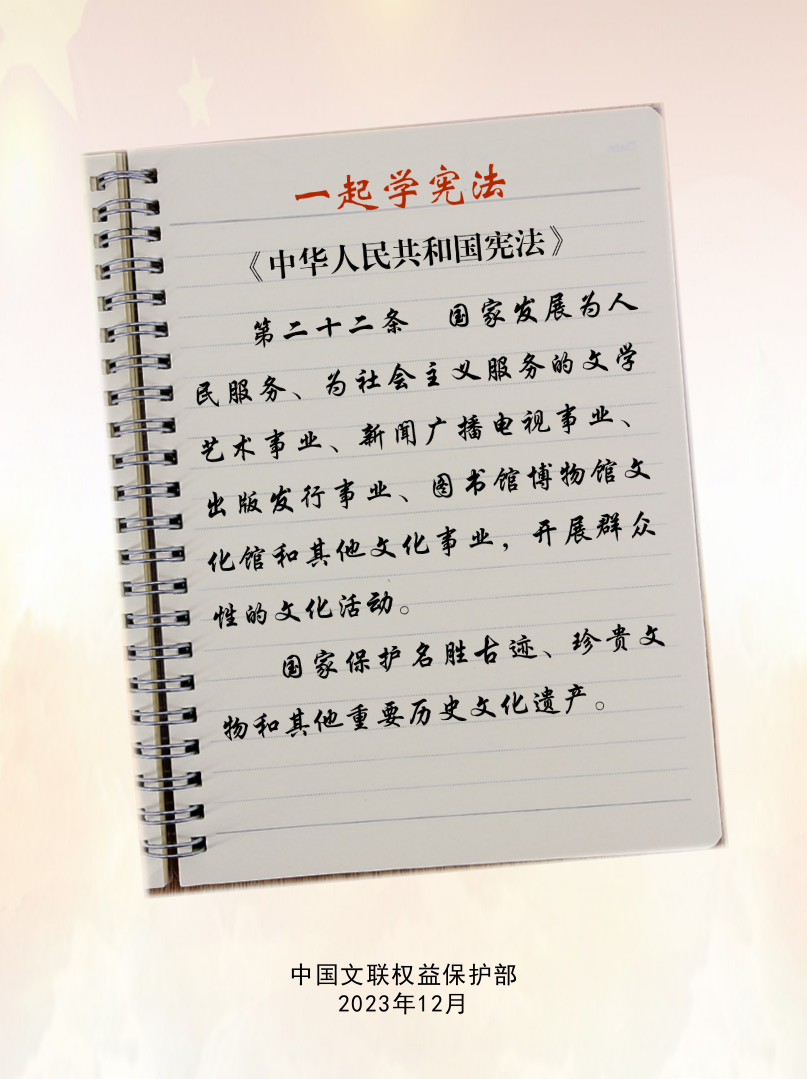 一起学宪法
《中华人民共和国宪法》
第二十二条 国家发展为人
民服务、为社会主义服务的文学
艺术事业、新闻广播电视事业、
出版发行事业、图书馆博物馆文
化馆和其他文化事业，开展群众
性的文化活动。
国家保护名胜古迹、珍贵文
物和其他重要历史文化遗产。
中国文联权益保护部
2023年12月